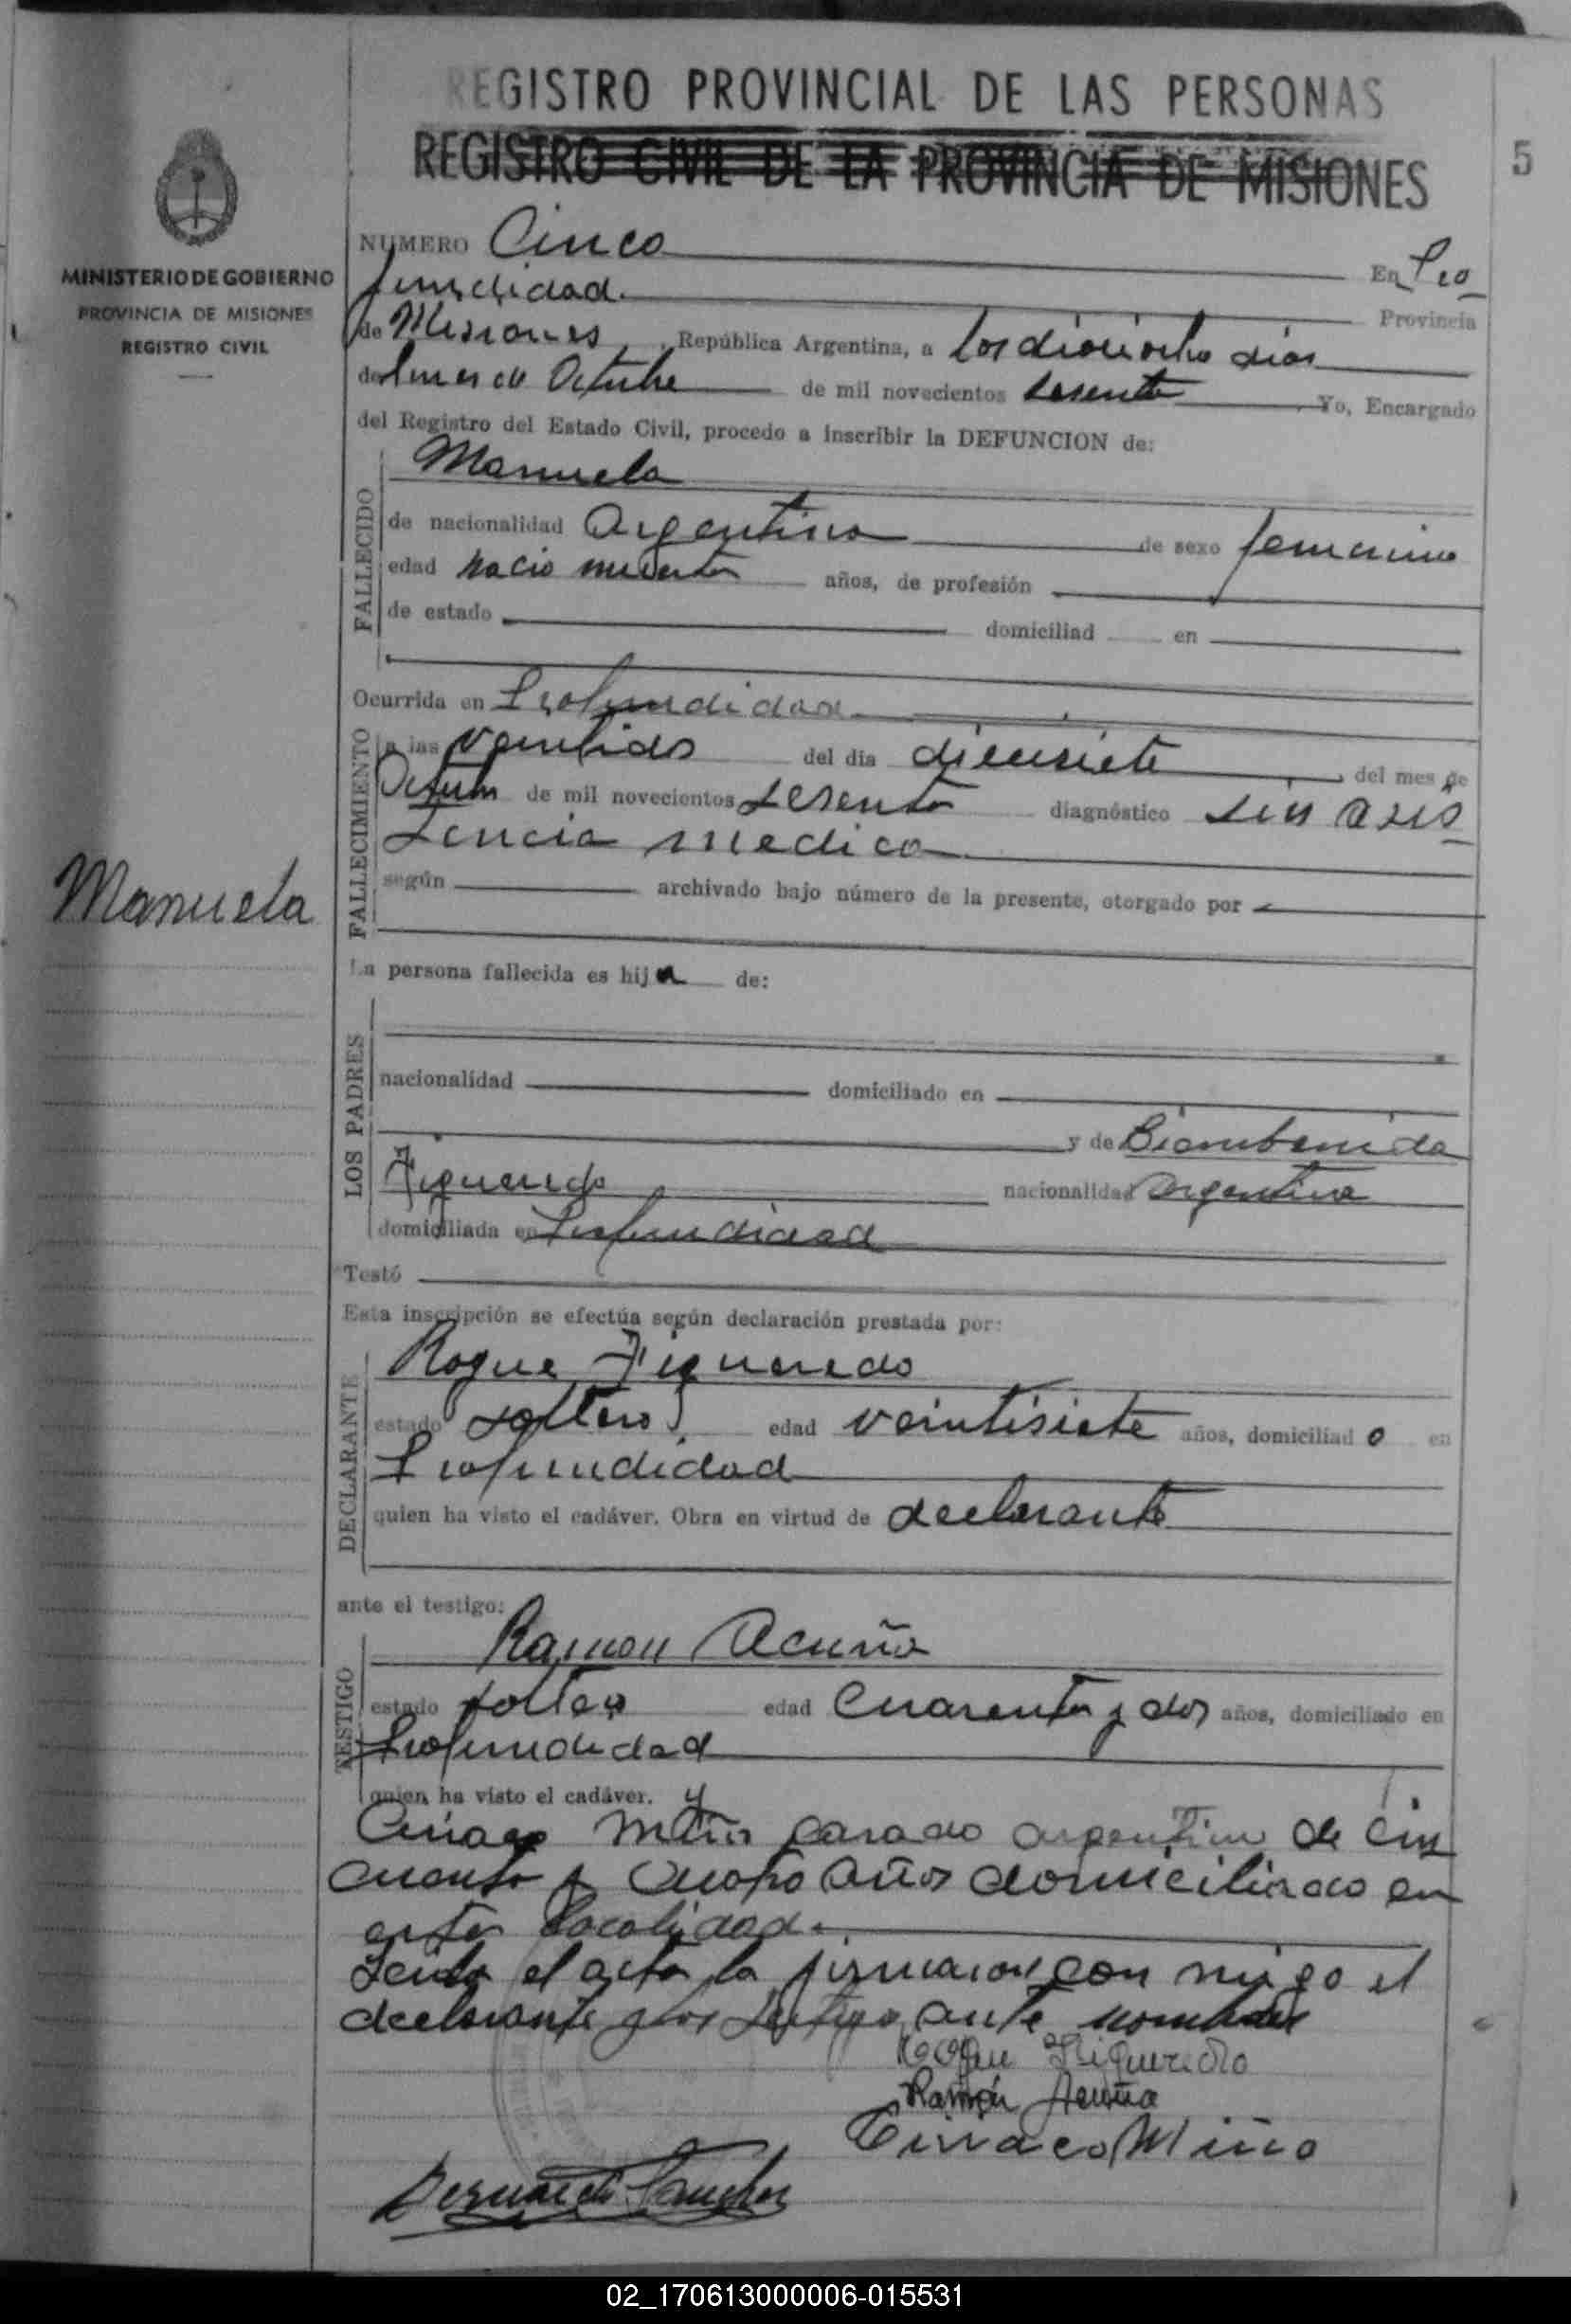 REGISTRO PROVINCIAL DE LAS PERSONAS
REGISTRO CIVIL DE LA PROVINCIA DE MISIONES
5
MINISTERIO DE GOBIERNO
PROVINCIA DE MISIONES
REGISTRO CIVIL
NUMERO Cinco En Pro
fundidad. Provincia
de Misiones, República Argentina, a los dieciocho dias
del mes de Octubre de mil novecientos sesenta, Yo, Encargado
del Registro del Estado Civil, procedo a inscribir la DEFUNCION de:
FALLECIDO
Manuela
de nacionalidad Argentina de sexo femenino
edad nacio muerta años, de profesión
de estado domiciliad en
Ocurrida en Profundidad
FALLECIMIENTO
a las veintidos del dia diecisiete del mes de
Octubre de mil novecientos sesenta diagnóstico sin asis
tencia medica
según archivado bajo número de la presente, otorgado por
Manuela
La persona fallecida es hija de:
LOS PADRES
nacionalidad domiciliado en
y de Biembenida
Figueredo nacionalidad argentina
domiciliada en Profundidad
Testó
Esta inscripción se efectúa según declaración prestada por:
DECLARANTE
Roque Figueredo
estado soltero edad veintisiete años, domiciliado en
Profundidad
quien ha visto el cadáver. Obra en virtud de declarante
ante el testigo:
TESTIGO
Ramon Acuña
estado soltero edad Cuarenta y dos años, domiciliado en
Profundidad
quien ha visto el cadáver. y
Ciriaco Miño casado argentino de cin
cuenta y cuatro años domiciliado en
esta localidad.
Leida el acta la firmaron con migo el
declarante y los testigo ante nombrados
Roque Figueredo
Ramón Acuña
Ciriaco Miño
Bernardo Sanchez
02_170613000006-015531